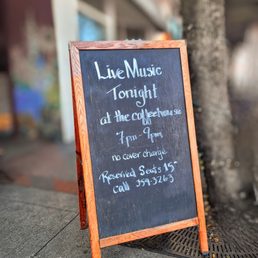 Live Music
Tonight
at the coffeehouse
7pm - 9pm
no cover charge
Reserved Seats $5
call 359-3263